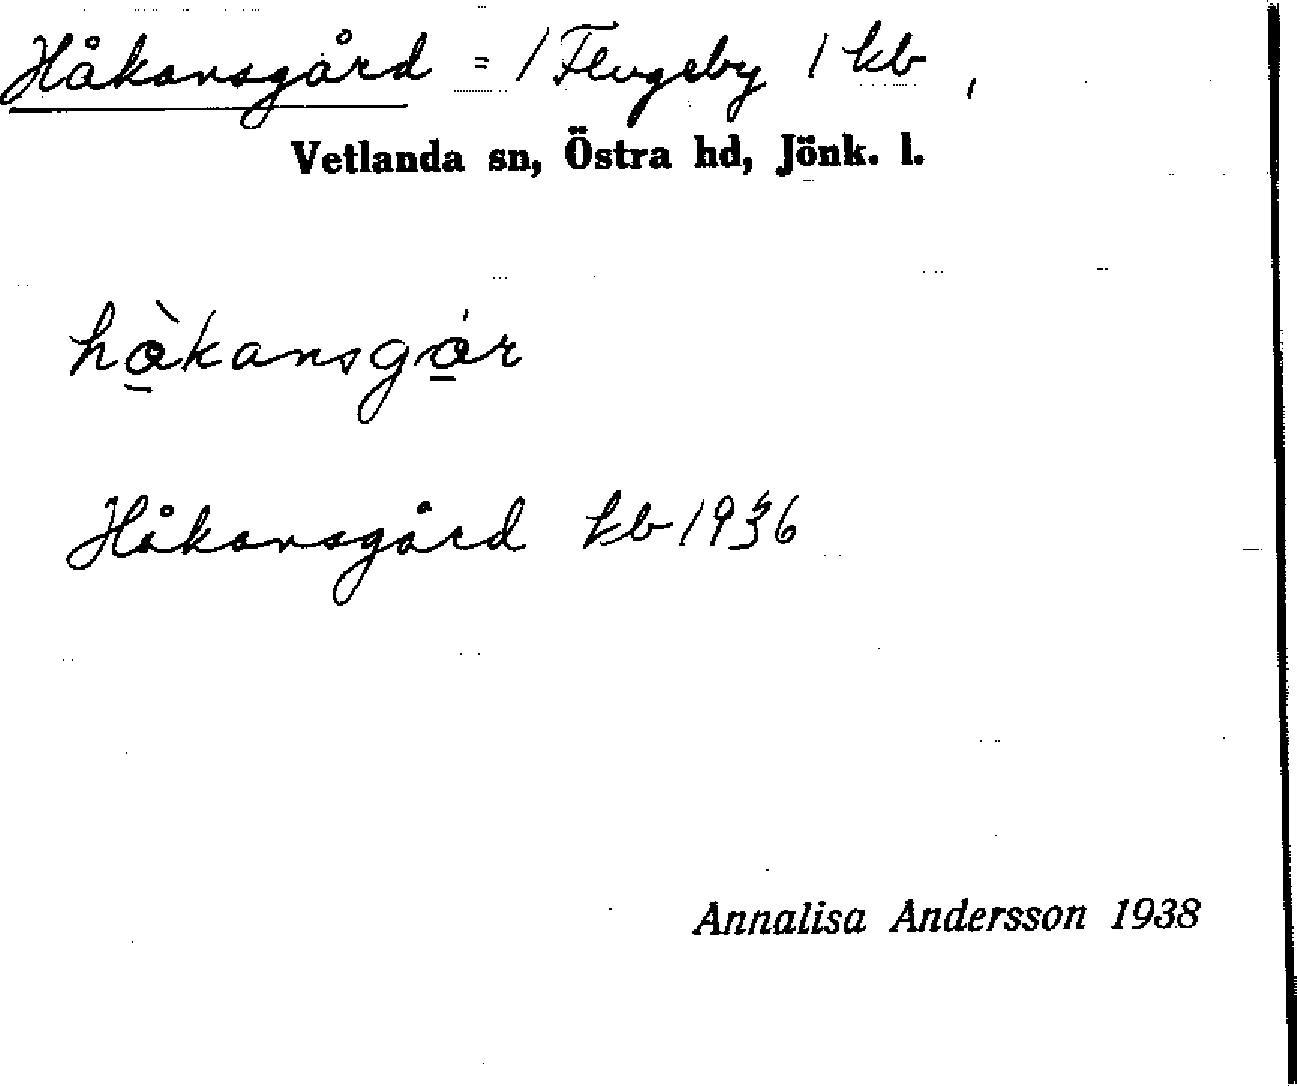 Håkansgård = / Flugeby / kb,
Vetlanda sn, Östra hd, Jönk. l.
hò̲kansgó̲r
Håkansgård kb 1936
Annalisa Andersson 1938